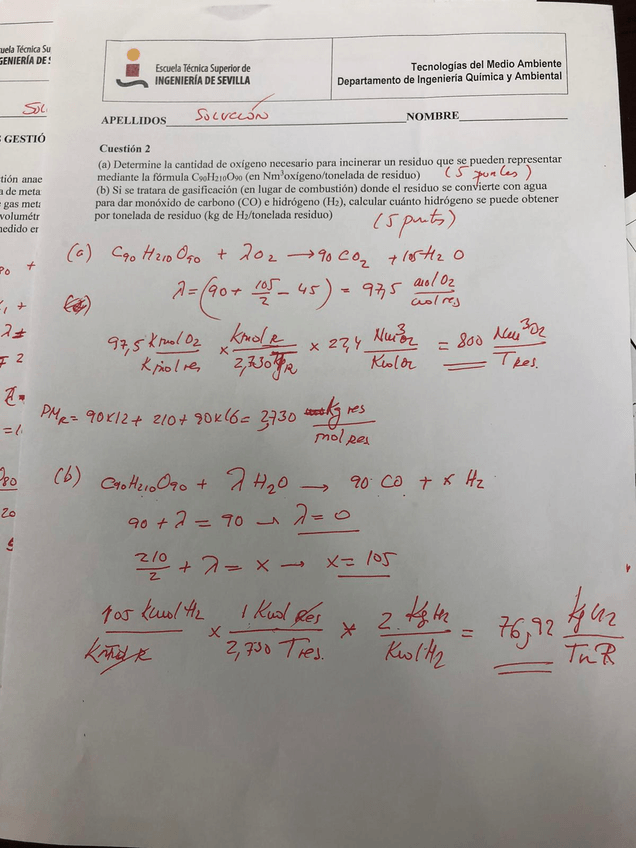 uela Técnica Su
GENIERÍA DE S
SOL
S GESTIÓ
tión anae
a de meta
gas meta
volumétr
nedido er
Escuela Técnica Superior de
INGENIERÍA DE SEVILLA
Tecnologías del Medio Ambiente
Departamento de Ingeniería Química y Ambiental
APELLIDOS SOLUCIÓN NOMBRE
Cuestión 2
(a) Determine la cantidad de oxígeno necesario para incinerar un residuo que se pueden representar
mediante la fórmula C₉₀H₂₁₀O₉₀ (en Nm³oxígeno/tonelada de residuo) (5 puntos)
(b) Si se tratara de gasificación (en lugar de combustión) donde el residuo se convierte con agua
para dar monóxido de carbono (CO) e hidrógeno (H₂), calcular cuánto hidrógeno se puede obtener
por tonelada de residuo (kg de H₂/tonelada residuo) (5 puntos)
(a) C₉₀H₂₁₀O₉₀ + λO₂ → 90 CO₂ + 105 H₂O
λ = (90 + 105/2 - 45) = 97,5 mol O₂/mol res
97,5 Kmol O₂/Kmol res × Kmol R/2,730 T R × 22,4 Nm³O₂/Kmol O₂ = 800 Nm³O₂/T res.
PM R = 90×12 + 210 + 90×16 = 2,730 Kg res/mol res
(b) C₉₀H₂₁₀O₉₀ + λ H₂O → 90 CO + x H₂
90 + λ = 90 → λ = 0
210/2 + λ = x → x = 105
105 Kmol H₂/Kmol R × 1 Kmol Res/2,730 T res. × 2 Kg H₂/Kmol H₂ = 76,92 Kg H₂/Tn R